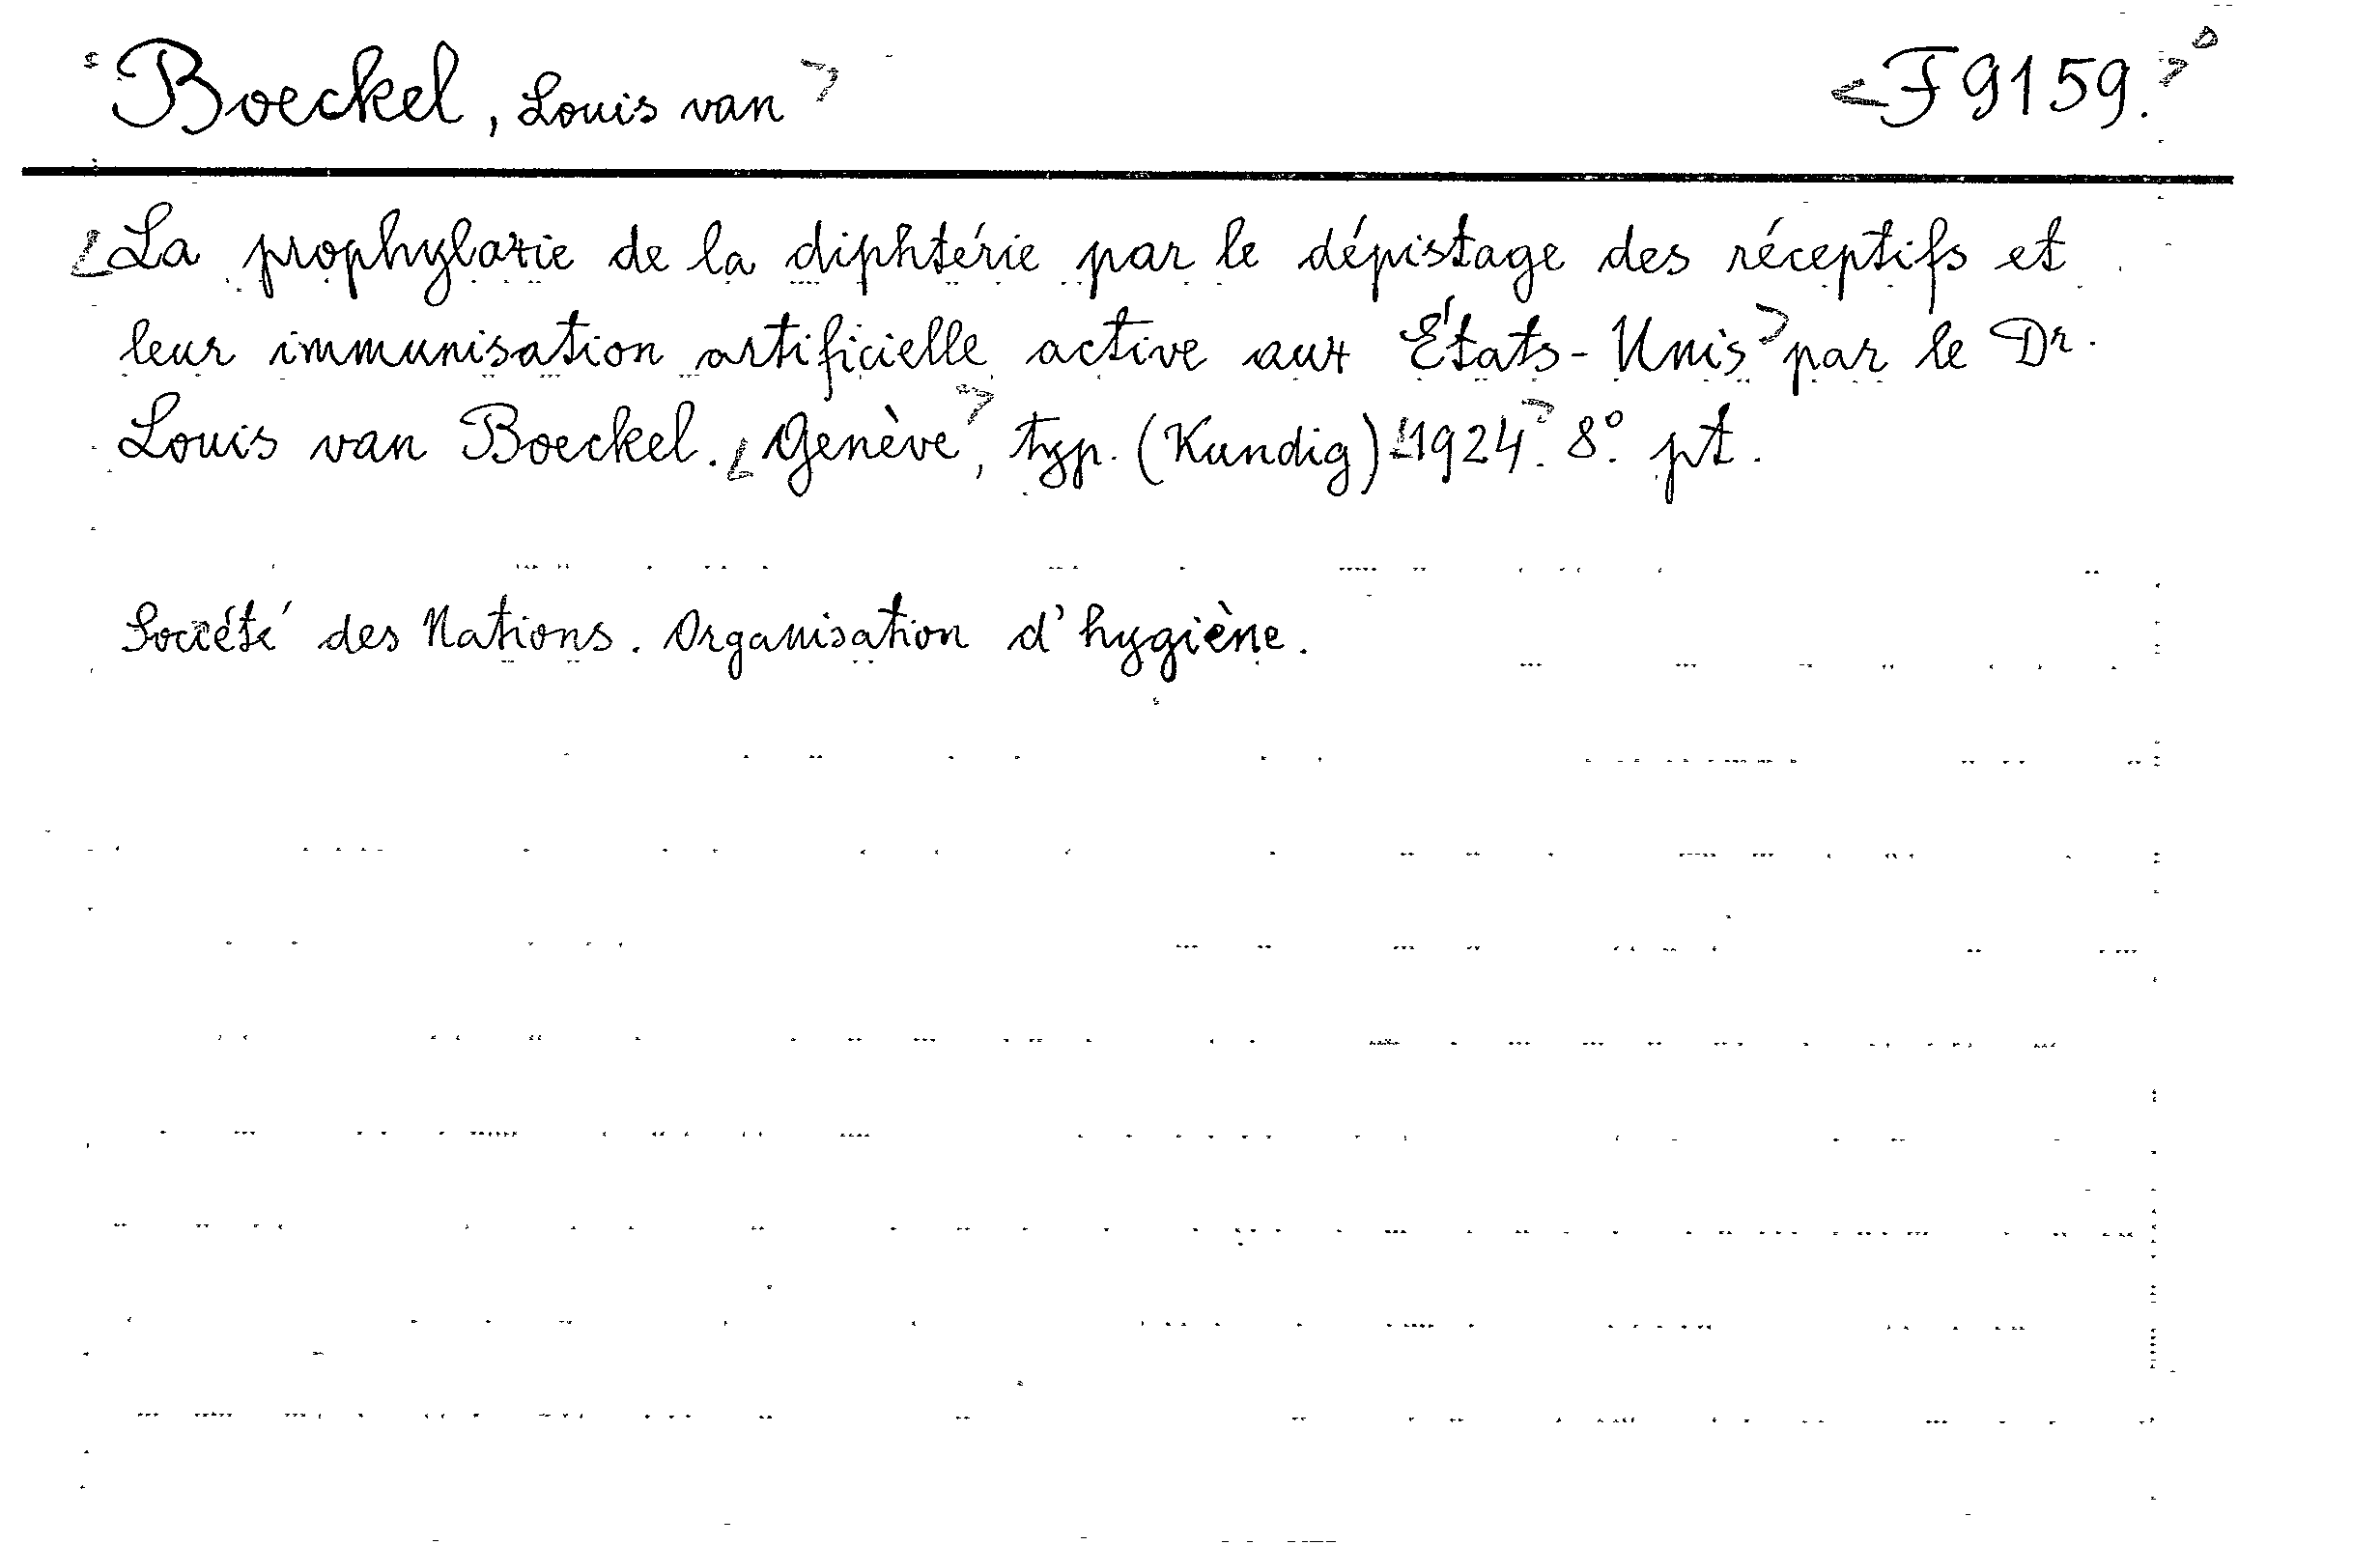 Boeckel, Louis van
F 9159.
La prophylaxie de la diphtérie par le dépistage des réceptifs et
leur immunisation artificielle active aux États-Unis par le Dr.
Louis van Boeckel. Genève, typ. (Kundig) 1924. 8º. pt.
Société des Nations. Organisation d'hygiène.